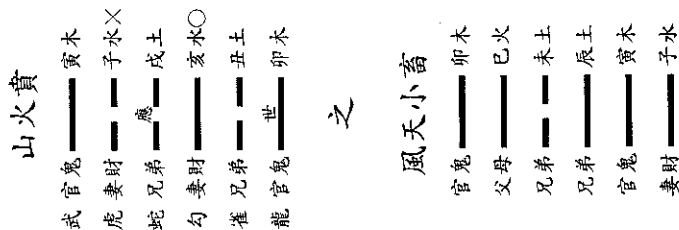 山火賁
武 官鬼 寅木
虎 妻財 子水×
蛇 兄弟 應 戌土
勾 妻財 亥水○
雀 兄弟 丑土
龍 官鬼 世 卯木
之
風天小畜
官鬼 卯木
父母 巳火
兄弟 未土
兄弟 辰土
官鬼 寅木
妻財 子水